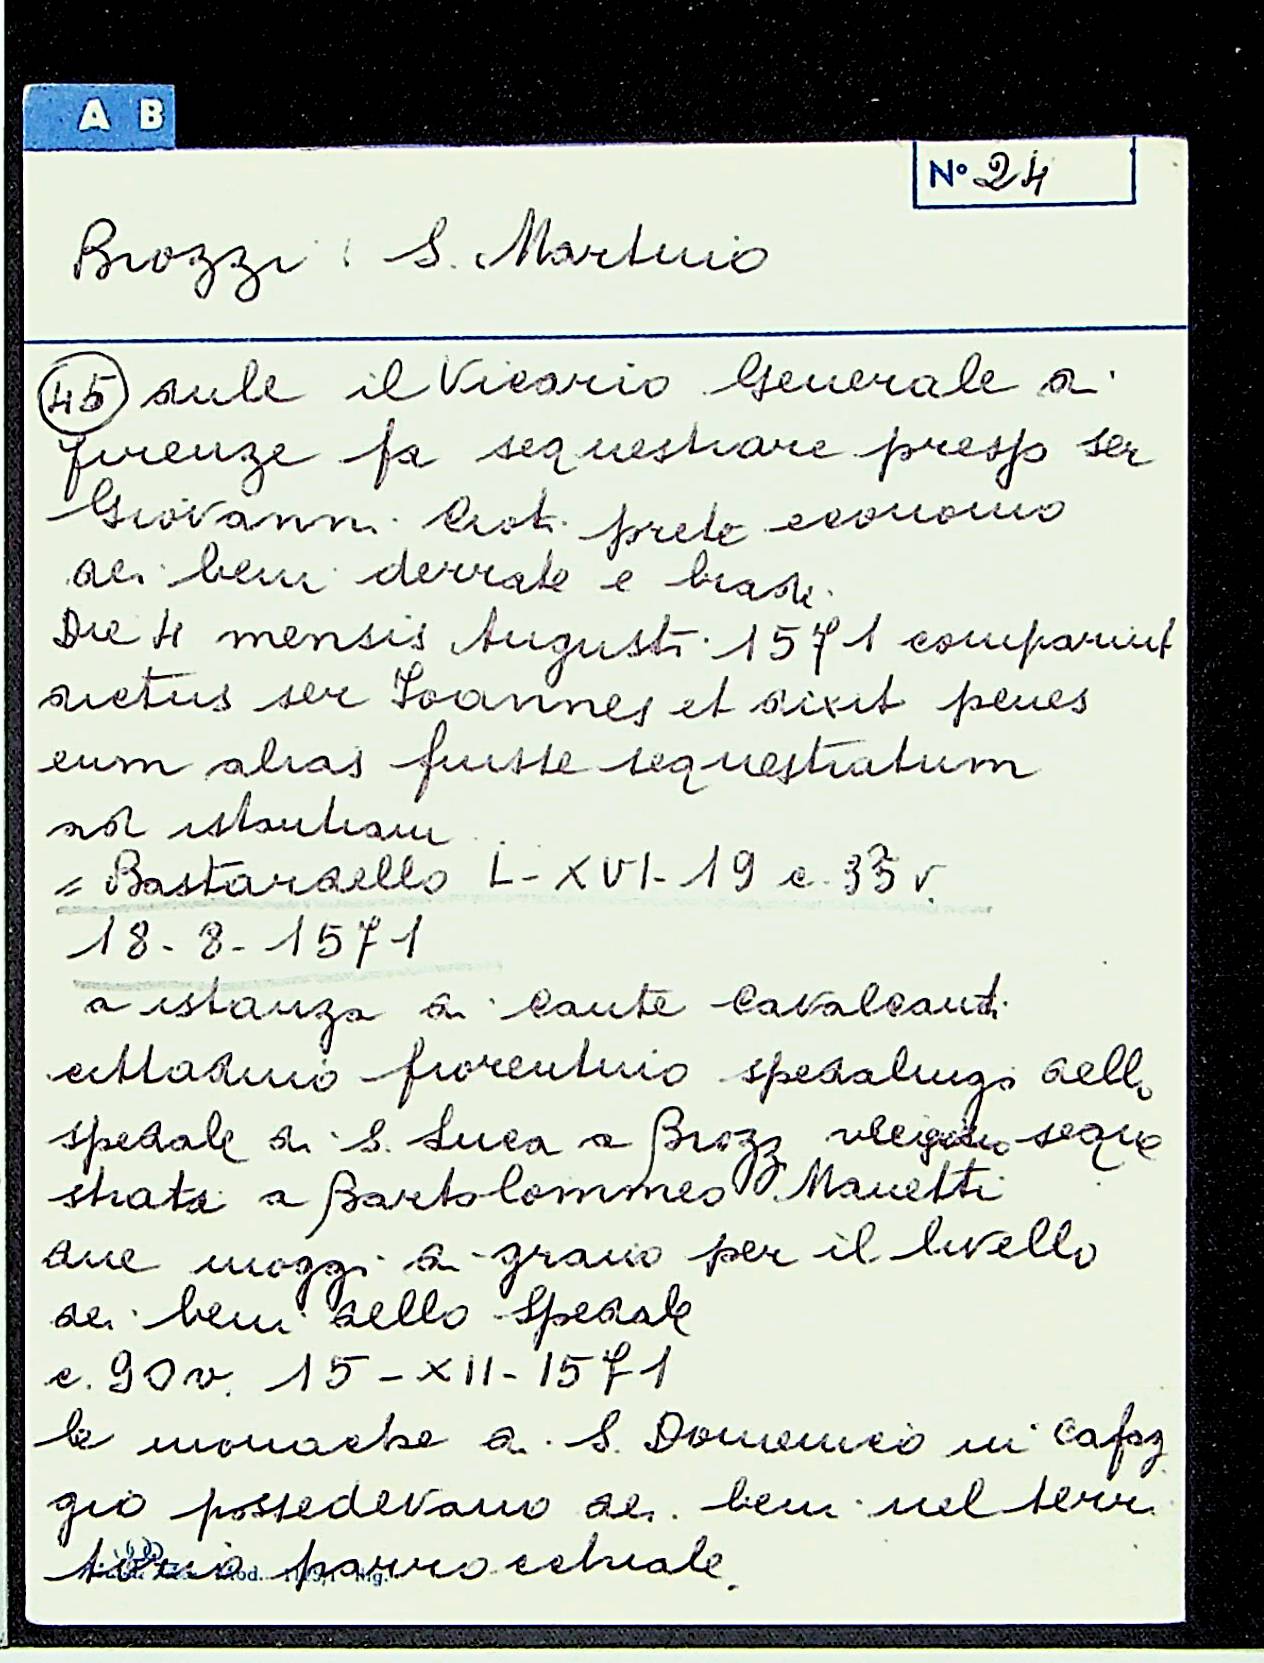 A B
N° 24
Brozzi: S. Martino
(45) sule il Vicario Generale di
Firenze fa sequestrare presso ser
Giovanni prete economo
dei beni derrate e
Die 4 mensis Augusti 1571 comparuit
dictus ser Joannes et dixit penes
eum alias fuisse sequestratum
ad istantiam
= Bastardello L-XVI-19 c. 33 v.
18-8-1571
a istanza di Cante Cavalcanti
cittadino fiorentino spedalingo dello
spedale di S. Luca a Brozzi seque
strati a Bartolommeo Manetti
due moggi di grano per il livello
dei beni dello Spedale
c. 90 v. 15-XII-1571
le monache di S. Domenico in Cafag
gio possedevano dei beni nel terri
torio parrocchiale.